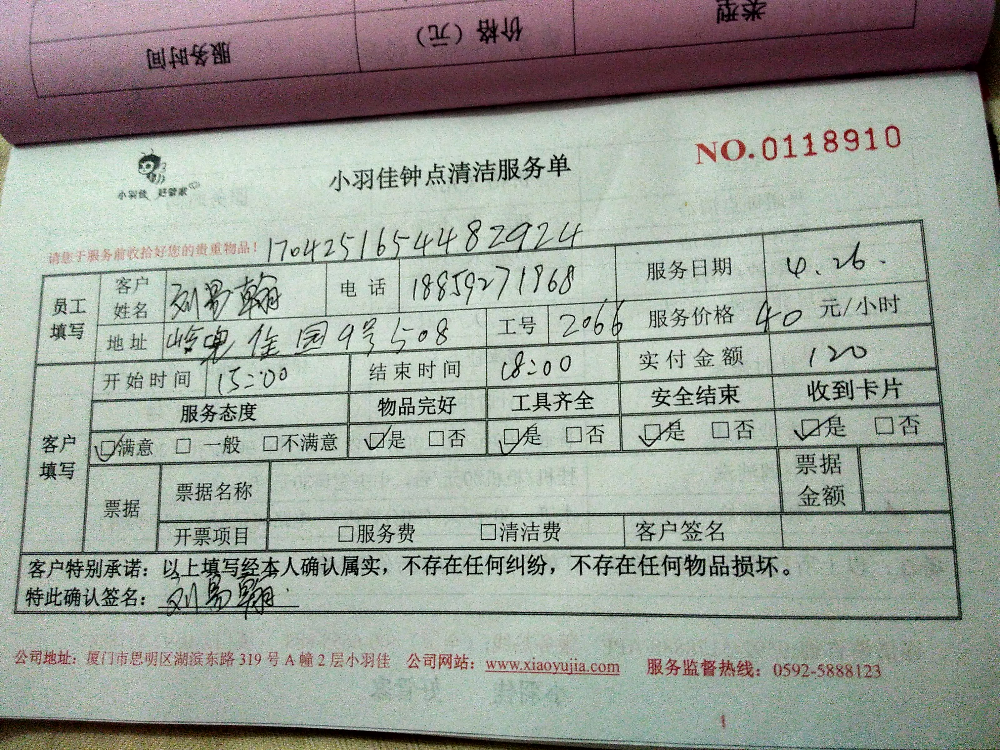 服务时间 价格（元） 类型
小羽佳 好管家
小羽佳钟点清洁服务单
NO.0118910
请您于服务前收拾好您的贵重物品！ 1704251654482924
员工填写 客户姓名 刘易翰 电话 18859271968 服务日期 4.26.
地址 佳园9号508 工号 2066 服务价格 40 元/小时
开始时间 15:00 结束时间 18:00 实付金额 120
客户填写 服务态度 物品完好 工具齐全 安全结束 收到卡片
☑满意 □一般 □不满意 ☑是 □否 ☑是 □否 ☑是 □否 ☑是 □否
票据 票据名称 票据金额
开票项目 □服务费 □清洁费 客户签名
客户特别承诺：以上填写经本人确认属实，不存在任何纠纷，不存在任何物品损坏。
特此确认签名：刘易翰
公司地址：厦门市思明区湖滨东路 319 号 A 幢 2 层小羽佳 公司网站：www.xiaoyujia.com 服务监督热线：0592-5888123